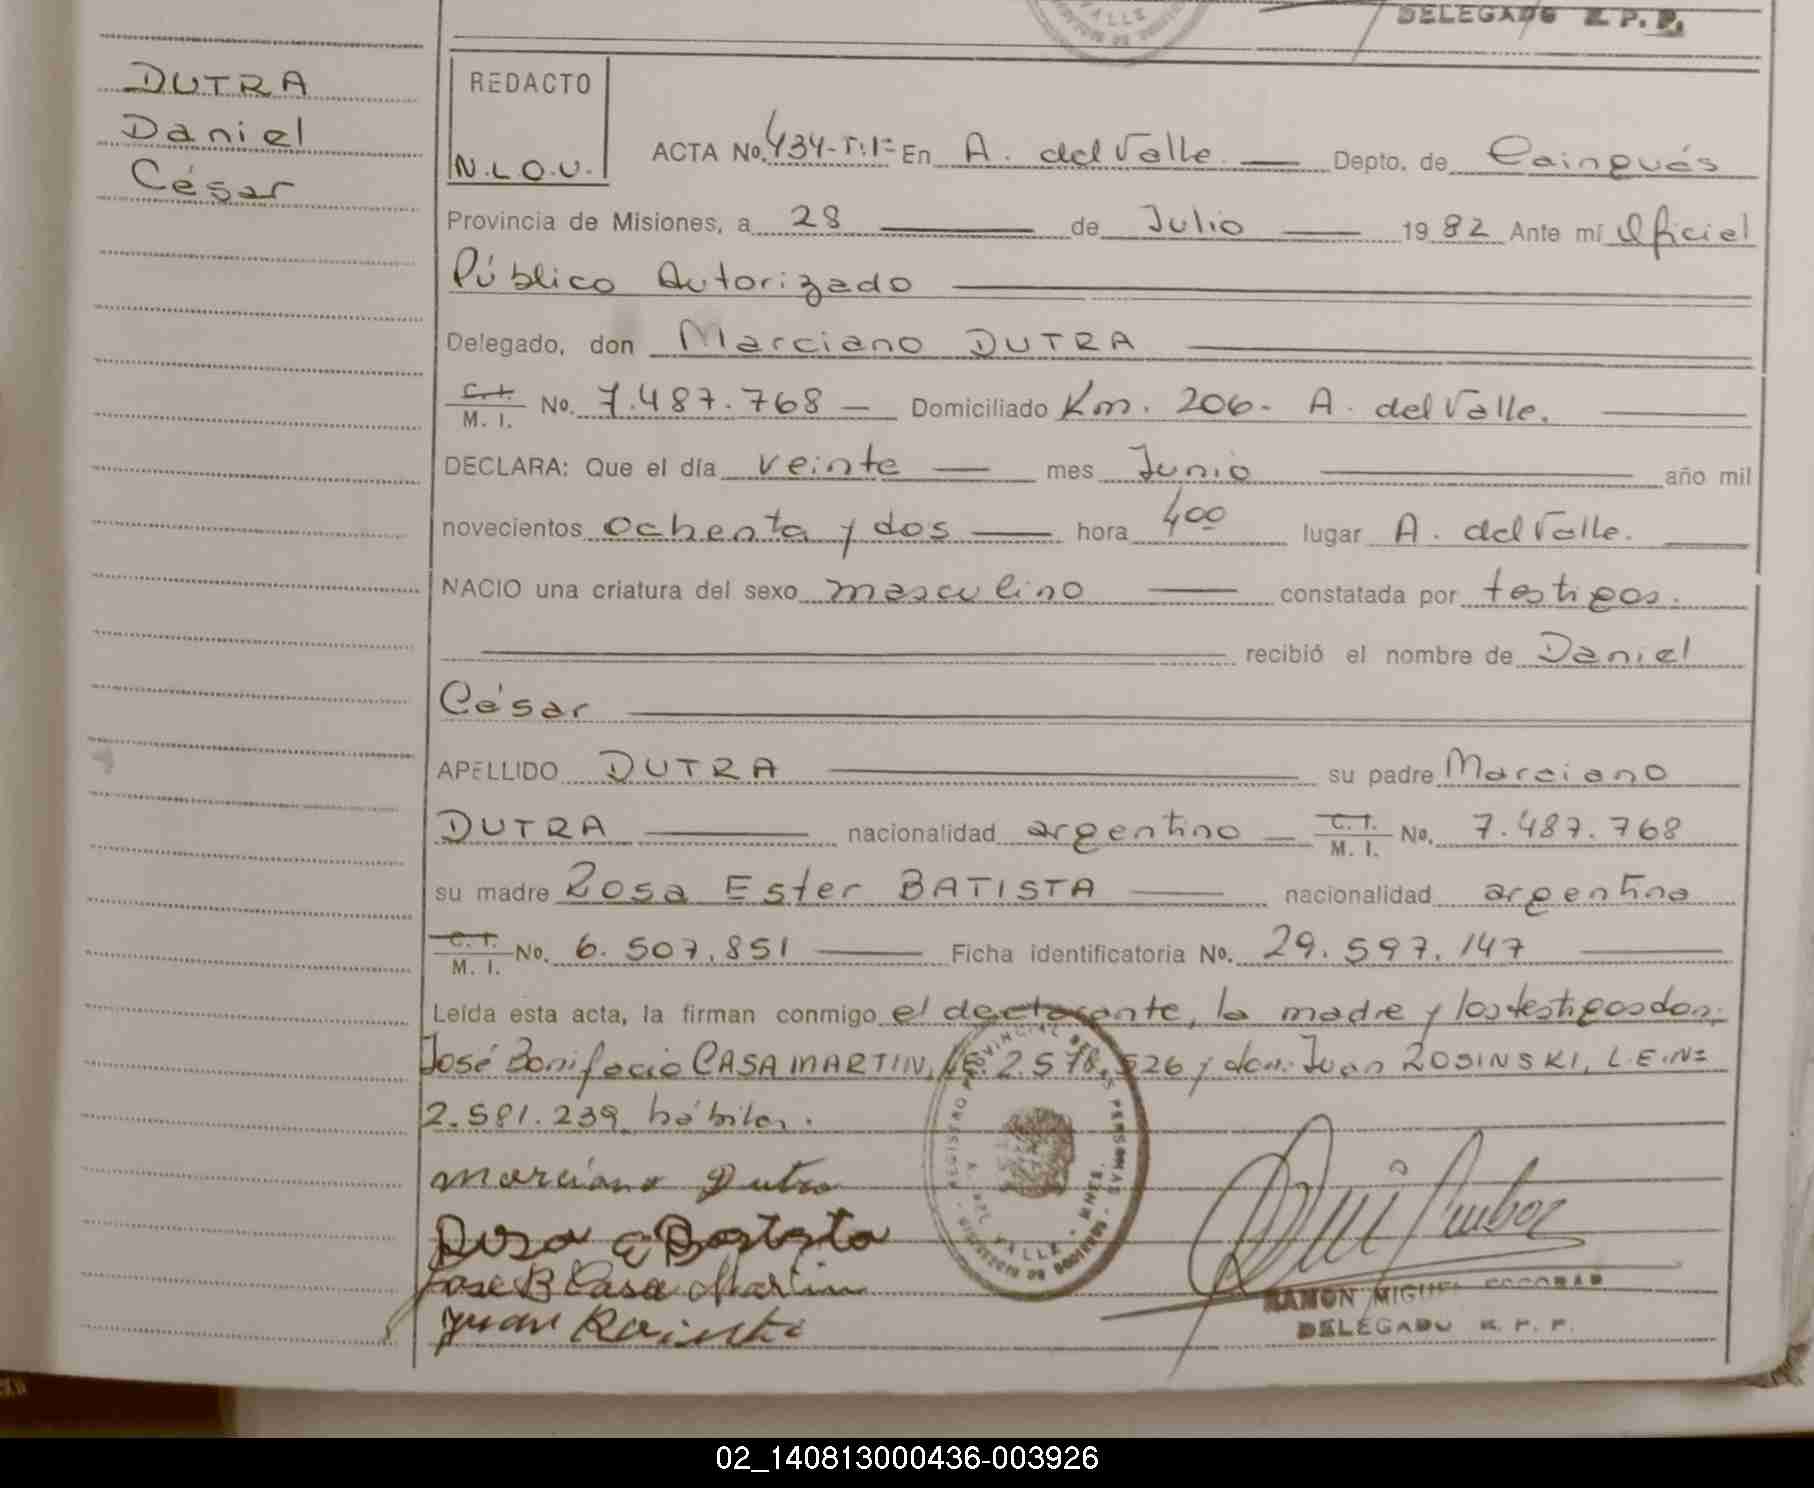 DELEGADO R. P. P.
DUTRA
Daniel
César
REDACTO
N.L.O.U.
ACTA No. 434-T:1º En A. del Valle Depto. de Cainguás
Provincia de Misiones, a 28 de Julio 1982 Ante mí Oficial
Público Autorizado
Delegado, don Marciano DUTRA
C. I. / M. I. No. 7.487.768 Domiciliado Km. 206- A. del Valle.
DECLARA: Que el día veinte mes Junio año mil
novecientos ochenta y dos hora 4 00 lugar A. del Valle.
NACIO una criatura del sexo masculino constatada por testigos.
recibió el nombre de Daniel
César
APELLIDO DUTRA su padre Marciano
DUTRA nacionalidad argentino C. I. / M. I. No. 7.487.768
su madre Rosa Ester BATISTA nacionalidad argentina
C. I. / M. I. No. 6.507.851 Ficha identificatoria No. 29.597.147
Leída esta acta, la firman conmigo el declarante, la madre y los testigos don:
José Bonifacio CASA MARTIN, LE. 2.578.526 y don: Juan ROSINSKI, L.E.Nº
2.581.239 hábiles.
REGISTRO PROVINCIAL DE LAS PERSONAS
A. DEL VALLE - MNES.
Marciano Dutra
Rosa E Batista
Jose B Casa Martin
Juan
RAMON MIGUEL ESCOBAR
DELEGADO R. P. P.
02_140813000436-003926